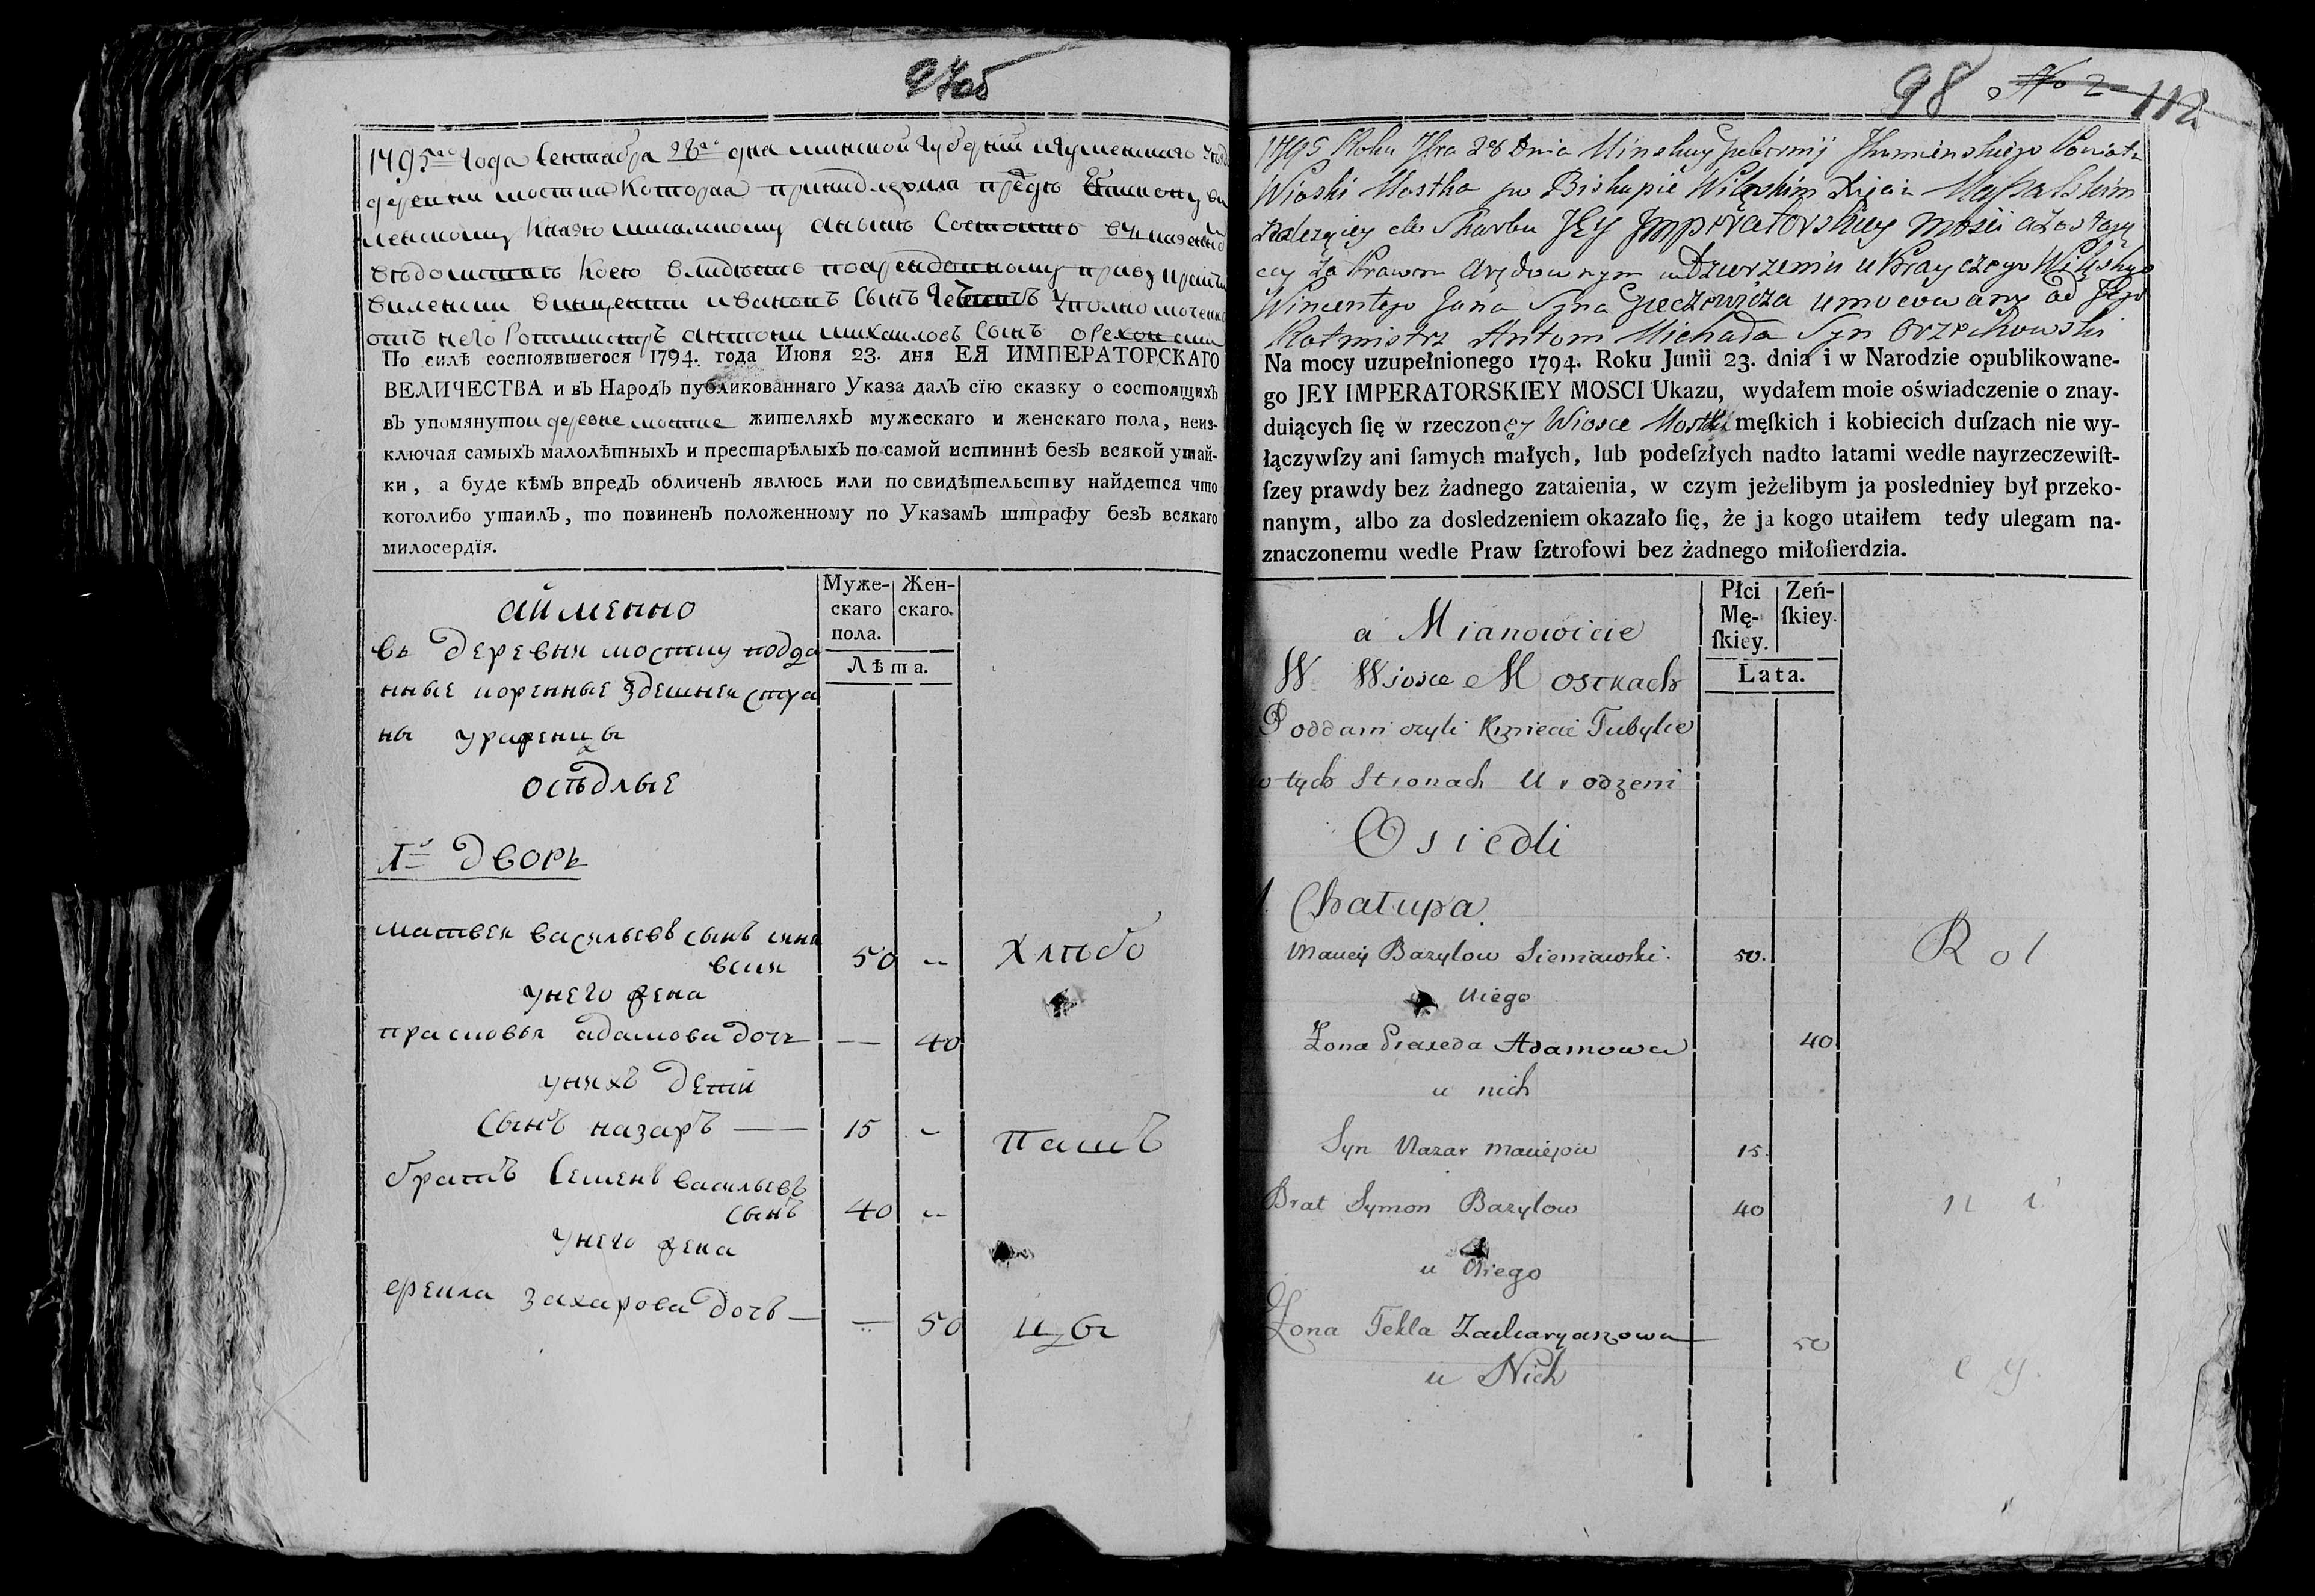 1795го года Сентября 28го дня минской губернии игуменского
деревни мостка Которая принадлежала
князю
Антони михаилов Сынъ
По силѣ состоявшегося 1794. года Июня 23. дня ЕЯ ИМПЕРАТОРСКАГО
ВЕЛИЧЕСТВА и въ НародЪ публикованнаго Указа далЪ сїю сказку о состоящихЪ
вЪ упомянутои деревне мостке жителяхЪ мужескаго и женскаго пола, неиз-
ключая самыхЪ малолѣтныхЪ и престарѣлыхЪ по самой истиннѣ безЪ всякой утай-
ки, а буде кѣмЪ впредЪ обличенЪ явлюсь или по свидѣтельству найдется что
коголибо утаилЪ, то повиненЪ положенному по УказамЪ штрафу безЪ всякаго
милосердїя.
Муже-
скаго
пола.
Жен-
скаго.
Лѣта.
аименно
въ деревни мостку подда
нные коренные здешнеи стра
ны урженцы
осѣдлые
1й дворъ
матвеи васильевъ сынъ
50 --
Хлѣбо
унего жена
прасковья адамова дочь — 40
унихъ детеи
сынъ назаръ —— 15 -
пашъ
братъ Семенъ васильевъ
сынъ 40 --
унего жена
захарова дочь — — 50
цы
98 No 2 112
1795 Roku 7bra 28 Dnia Minskiey Gubernij Ihumenskiego Powiatu
Wioski Mostka po Biskupie Wilenskim Xięciu Massalskim
należącey do Skarbu JEY Imperatorskiey Mosci a zostaią
cey za Prawem Arędownym w Dzierżeniu u Krayczego
Wincentego Jana Syna umocowany od Jego
Rotmistrz Antoni Michała Syn Orzechowski
Na mocy uzupełnionego 1794. Roku Junii 23. dnia i w Narodzie opublikowane-
go JEY IMPERATORSKIEY MOSCI Ukazu, wydałem moie oświadczenie o znay-
duiących ſię w rzeczoney Wiosce Mostku męſkich i kobiecich duſzach nie wy-
łączywſzy ani ſamych małych, lub podeſzłych nadto latami wedle nayrzeczewiſt-
ſzey prawdy bez żadnego zataienia, w czym jeżelibym ja posledniey był przeko-
nanym, albo za dosledzeniem okazało ſię, że ja kogo utaiłem tedy ulegam na-
znaczonemu wedle Praw ſztrofowi bez żadnego miłoſierdzia.
Płci
Mę-
ſkiey.
Zeń-
ſkiey.
Lata.
a Mianowicie
W Wiosce Mostkach
Poddani czyli Kmiecie Tubylce
w tych Stronach Urodzeni
Osiedli
1. Chałupa
Maciey Bazylow Sieniawski. 50.
Rol
u niego
Zona Praxeda Adamowa 40
u nich
Syn Nazar Maciejow 15.
Brat Symon Bazylow 40
ni
u Niego
Zona Tekla Zacharyaszowa 50
cy.
u Nich